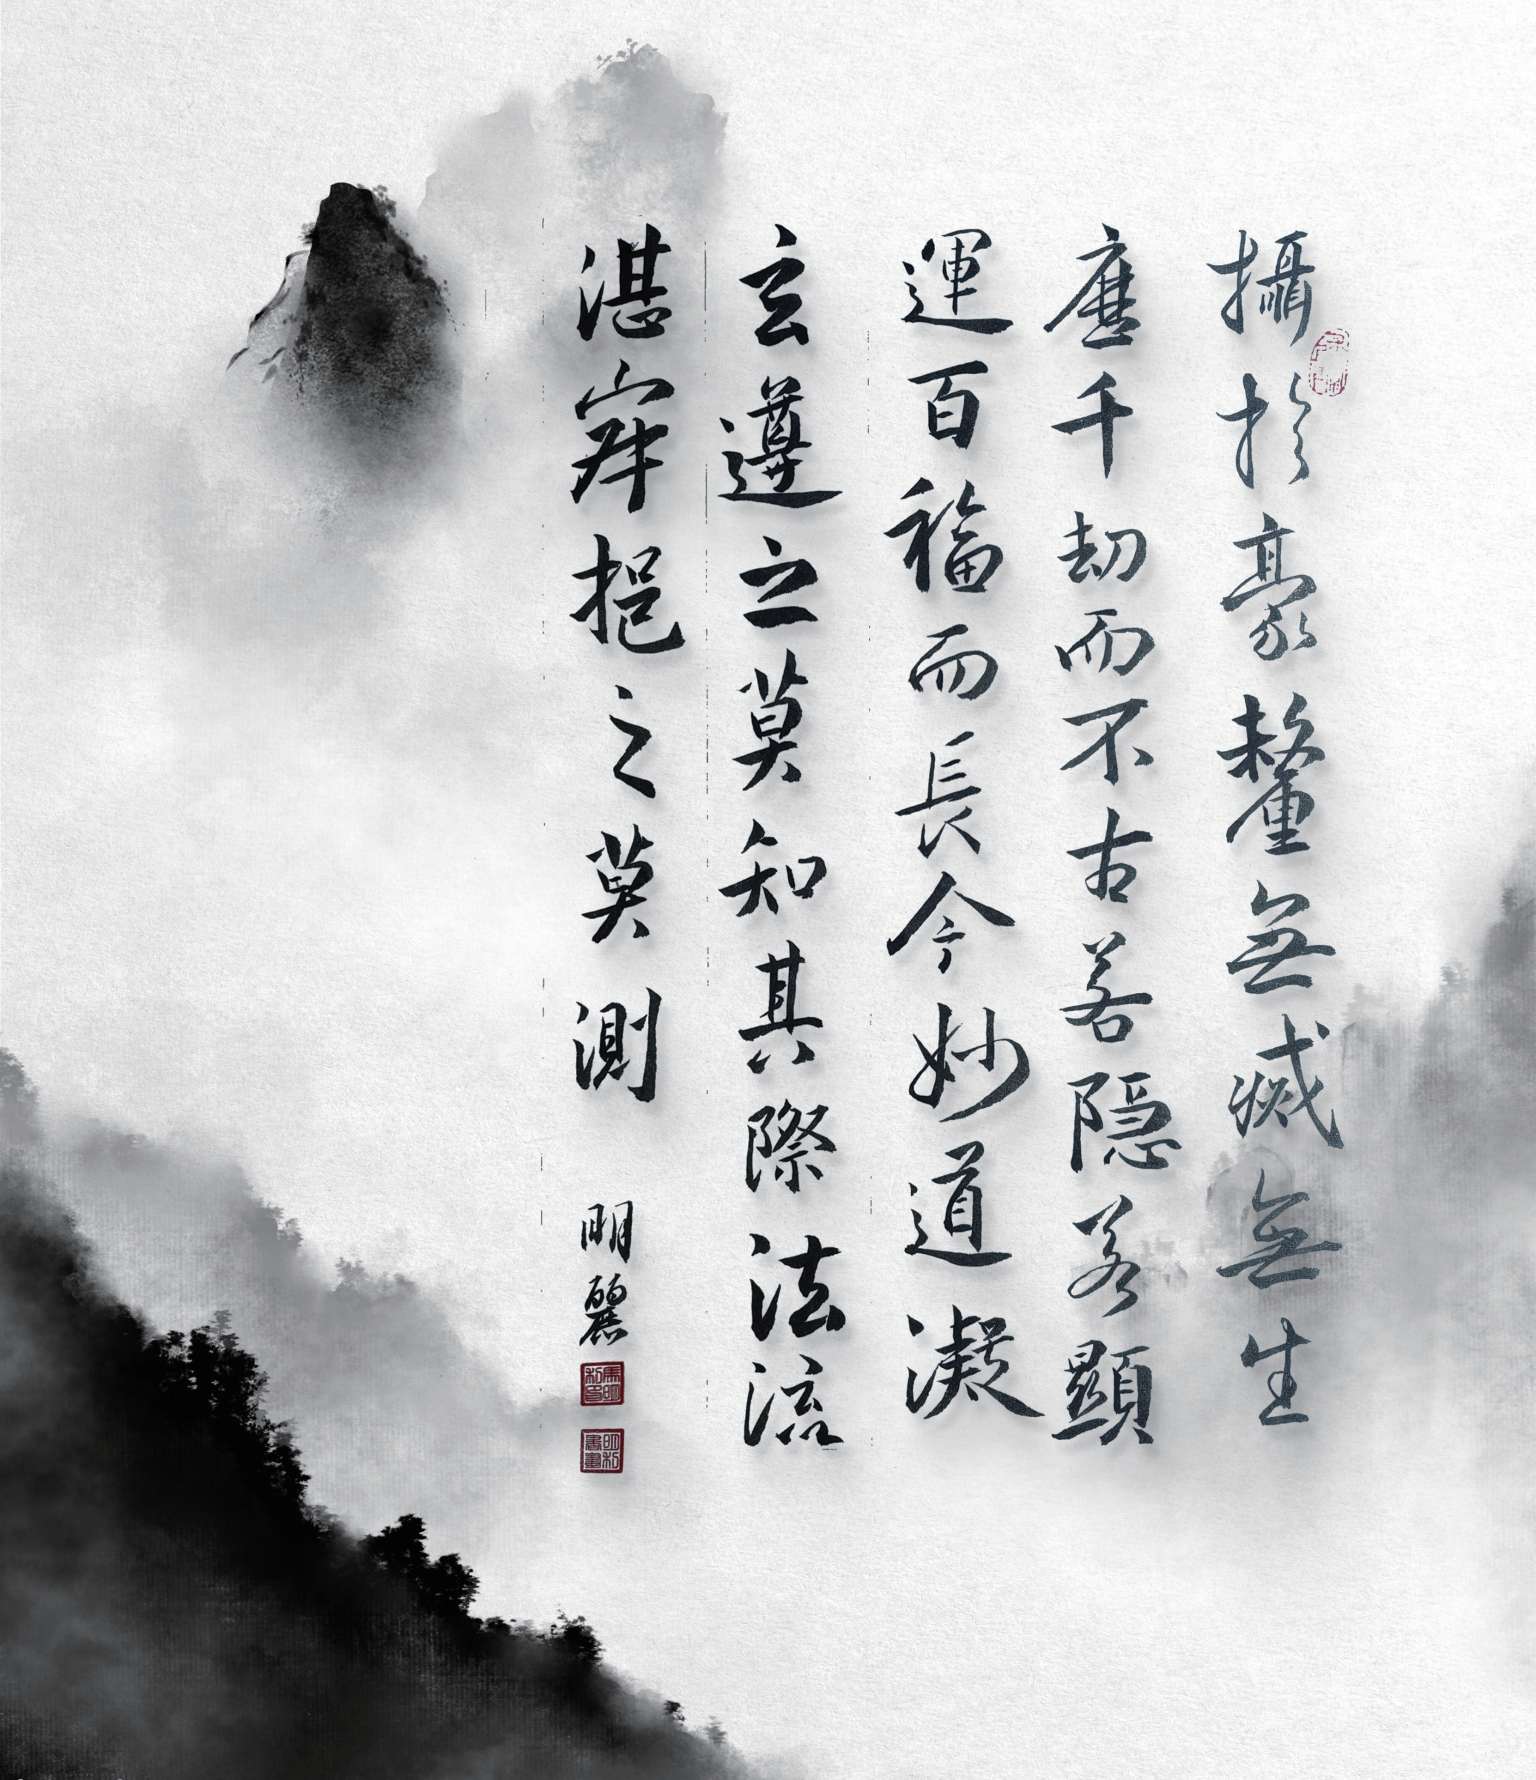 攝於豪釐無滅無生
歷千劫而不古若隱若顯
運百福而長今妙道凝
玄遵之莫知其際法流
湛寂挹之莫測
明麗
明利書畫